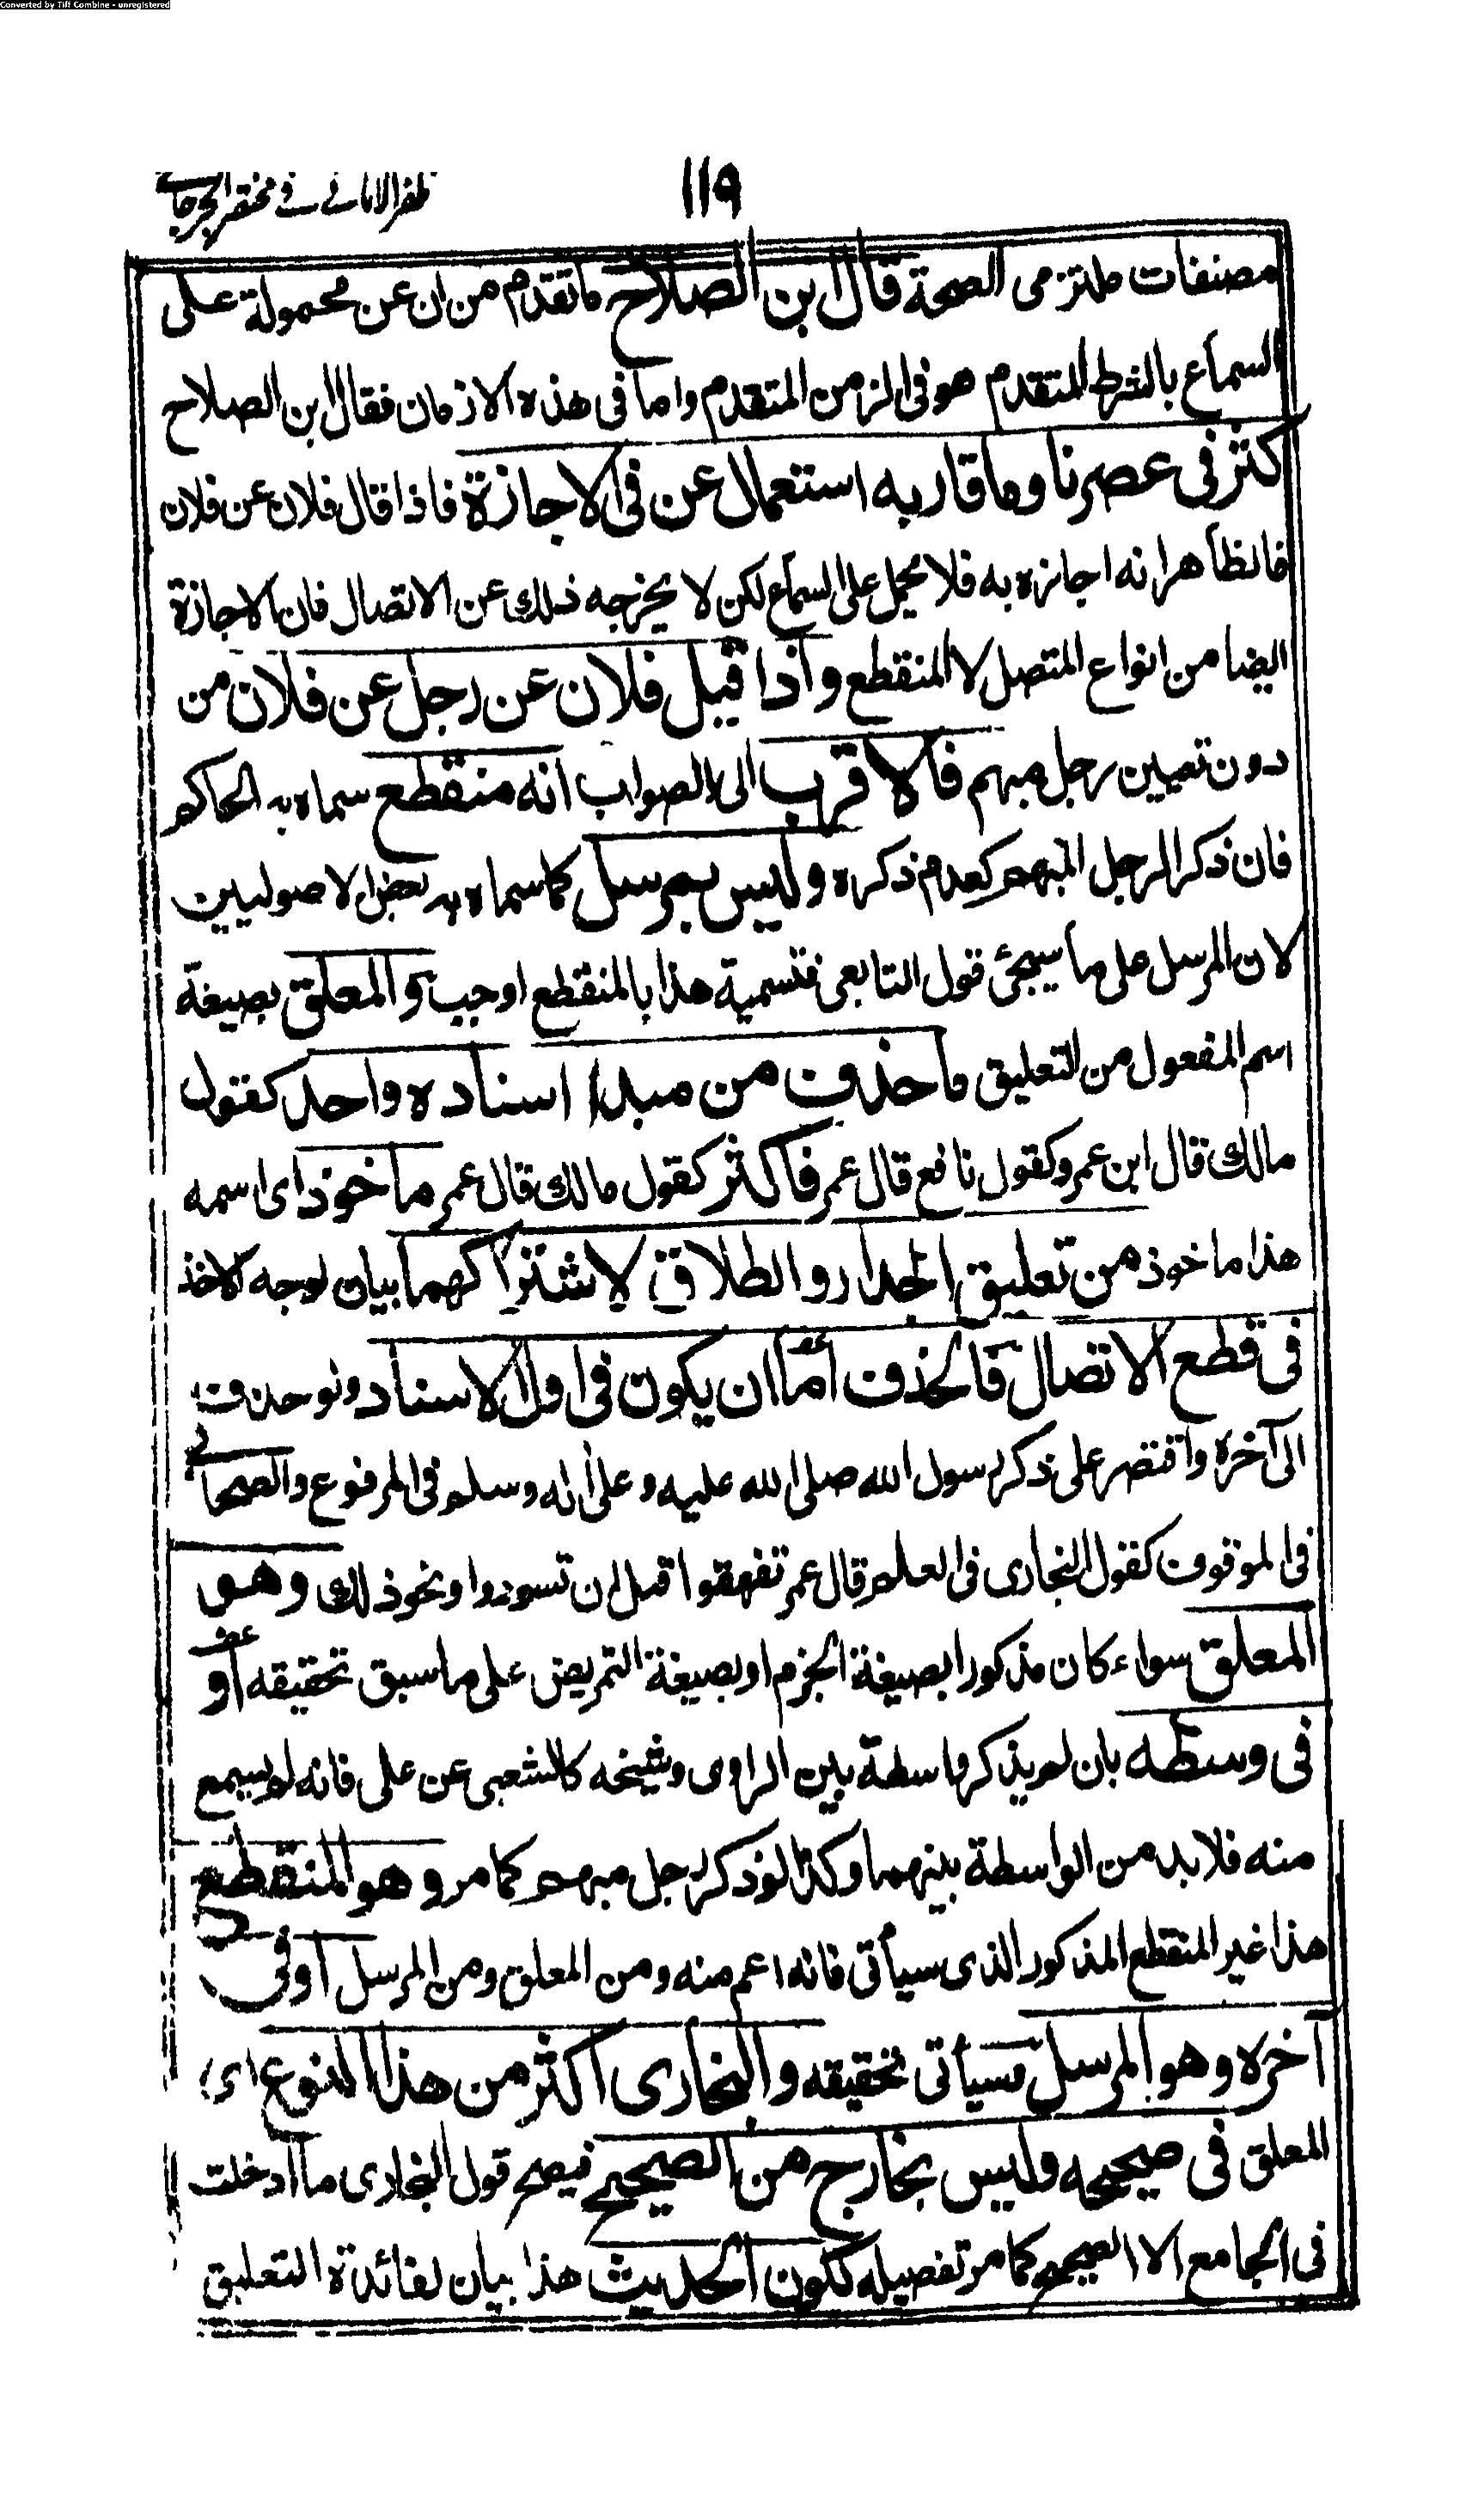 Converted by Tiff Combine - unregistered
١١٩
ظفر الامانے فے مختصر الجرجانے
مصنفات ملتزمى الصحة قال ابن الصلاح ما تقدم من ان عن محمولة على
السماع بالشرط المتقدم هو فى الزمن المتقدم واما فى هذه الازمان فقال ابن الصلاح
كثر فى عصرنا وما قاربه استعمال عن فى الاجازة فاذا قال فلان عن فلان
فالظاهر انه اجازه به فلا يحمل على السماع لكن لا يخرجه ذلك عن الاتصال فان الاجازة
ايضا من انواع المتصل لا المنقطع واذا قيل فلان عن رجل عن فلان من
دون تعيين رجل مبهم فالاقرب الى الصواب انه منقطع سماه به الحاكم
فان ذكر الرجل المبهم كعدم ذكره وليس بمرسل كما سماه به بعض الاصوليين
لان المرسل على ما سيجئ قول التابعى فتسمية هذا بالمنقطع اوجب والمعلق بصيغة
اسم المفعول من التعليق ما حذف من مبدأ اسناده واحد كقول
مالك قال ابن عمر وكقول نافع قال عمر فاكثر كقول مالك قال عمر ماخوذ اى اسمه
هذا ماخوذ من تعليق الجدار والطلاق لاشتراكهما بيان لوجه الاخذ
فى قطع الاتصال فالحذف اما ان يكون فى اول الاسناد ولو حذف
الى آخره واقتصر على ذكر رسول الله صلى الله عليه وعلى اله وسلم فى المرفوع والصحابے
فى الموقوف كقول البخارى فى العلم قال عمر تفهقوا قبل ان تسودوا ونحو ذلك وهو
المعلق سواء كان مذكورا بصيغة الجزم او بصيغة التمريض على ما سبق تحقيقه او
فى وسطه بان لم يذكر واسطة بين الراوى وشيخه كالشعبى عن على فانه لم يسمع
منه فلا بد من الواسطة بينهما وكذا لو ذكر رجل مبهم كما مر وهو المنقطع
هذا غير المنقطع المذكور الذى سيأتى فانه اعم منه ومن المعلق ومن المرسل او فى
آخره وهو المرسل سيأتى تحقيقه والبخارى اكثر من هذا النوع اى
المعلق فى صحيحه وليس بخارج من الصحيح فيصح قول البخارى ما ادخلت
فى الجامع الا الصحيح كما مر تفصيله لكون الحديث هذا بيان لفائدة التعليق